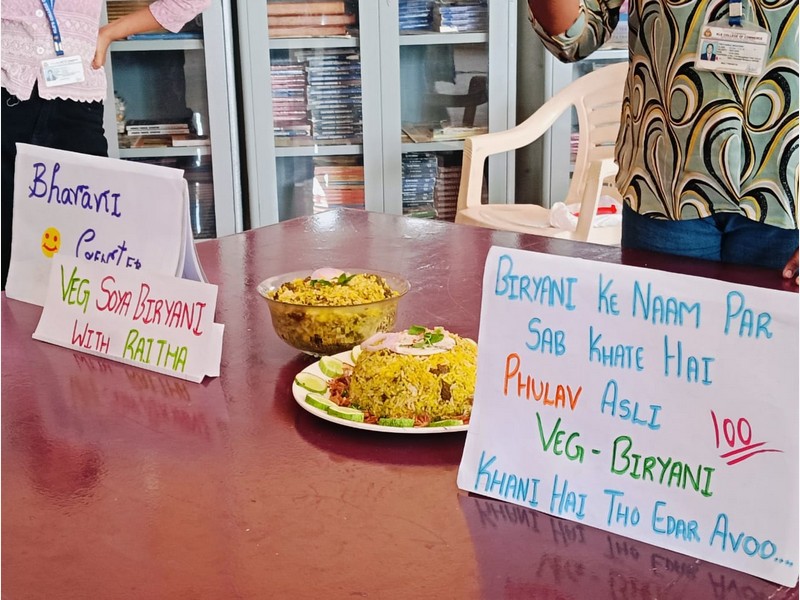 Bharani
VEG SOYA BIRYANI
WITH RAITHA
BIRYANI KE NAAM PAR
SAB KHATE HAI
PHULAV ASLI
100
VEG - BIRYANI
KHANI HAI THO EDAR AVOO....